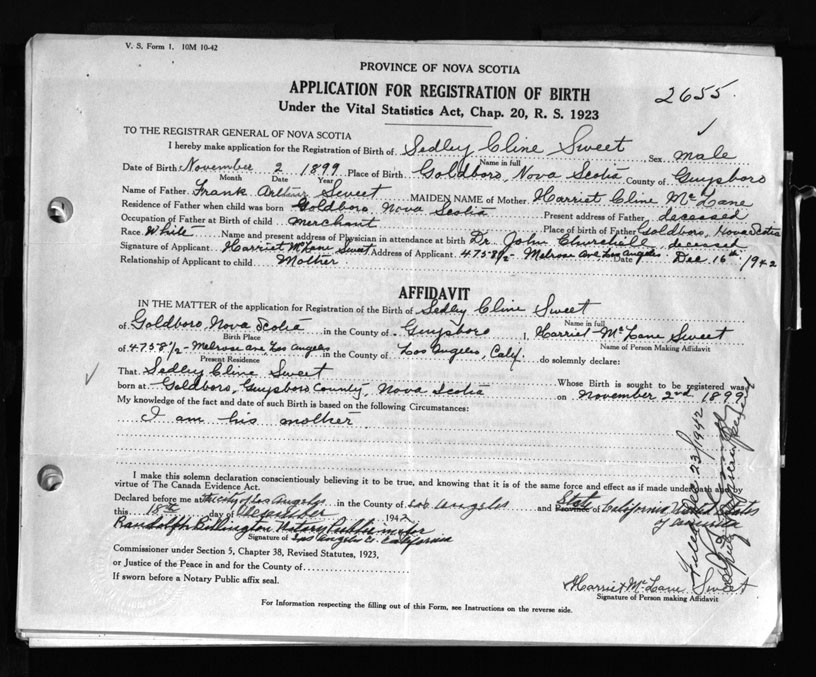 V. S. Form 1. 10M 10-42
PROVINCE OF NOVA SCOTIA
APPLICATION FOR REGISTRATION OF BIRTH
2655.
Under the Vital Statistics Act, Chap. 20, R. S. 1923
TO THE REGISTRAR GENERAL OF NOVA SCOTIA
I hereby make application for the Registration of Birth of Sedley Cline Sweet Sex male
Name in full
Date of Birth November 2 1899 Place of Birth Goldboro, Nova Scotia County of Guysboro
Month Date Year
Name of Father Frank Arthur Sweet MAIDEN NAME of Mother Harriet Cline McLane
Residence of Father when child was born Goldboro, Nova Scotia Present address of Father deceased
Occupation of Father at Birth of child merchant Place of birth of Father Goldboro, Nova Scotia
Race White Name and present address of Physician in attendance at birth Dr. John Churchill, deceased
Signature of Applicant Harriet McLane Sweet Address of Applicant 4758½ Melrose Ave Los Angeles Date Dec. 16th, 1942
Relationship of Applicant to child Mother
AFFIDAVIT
IN THE MATTER of the application for Registration of the Birth of Sedley Cline Sweet
Name in full
of Goldboro, Nova Scotia in the County of Guysboro I, Harriet McLane Sweet
Birth Place Name of Person Making Affidavit
of 4758½ Melrose ave, Los Angeles in the County of Los Angeles, Calif. do solemnly declare:
Present Residence
That Sedley Cline Sweet Whose Birth is sought to be registered was
born at Goldboro, Guysboro County, Nova Scotia on November 2nd, 1899
My knowledge of the fact and date of such Birth is based on the following Circumstances:
I am his mother
I make this solemn declaration conscientiously believing it to be true, and knowing that it is of the same force and effect as if made under oath and by
virtue of The Canada Evidence Act.
Declared before me at the city of Los Angeles in the County of Los Angeles and Province of State California United States
this 18th day of December 1942 of America
Randolph Notary Public
Signature of Los Angeles Co. California
Commissioner under Section 5, Chapter 38, Revised Statutes, 1923,
or Justice of the Peace in and for the County of
If sworn before a Notary Public affix seal.
Harriet McLane Sweet
Signature of Person making Affidavit
For Information respecting the filling out of this Form, see Instructions on the reverse side.
Filed Dec 23/1942